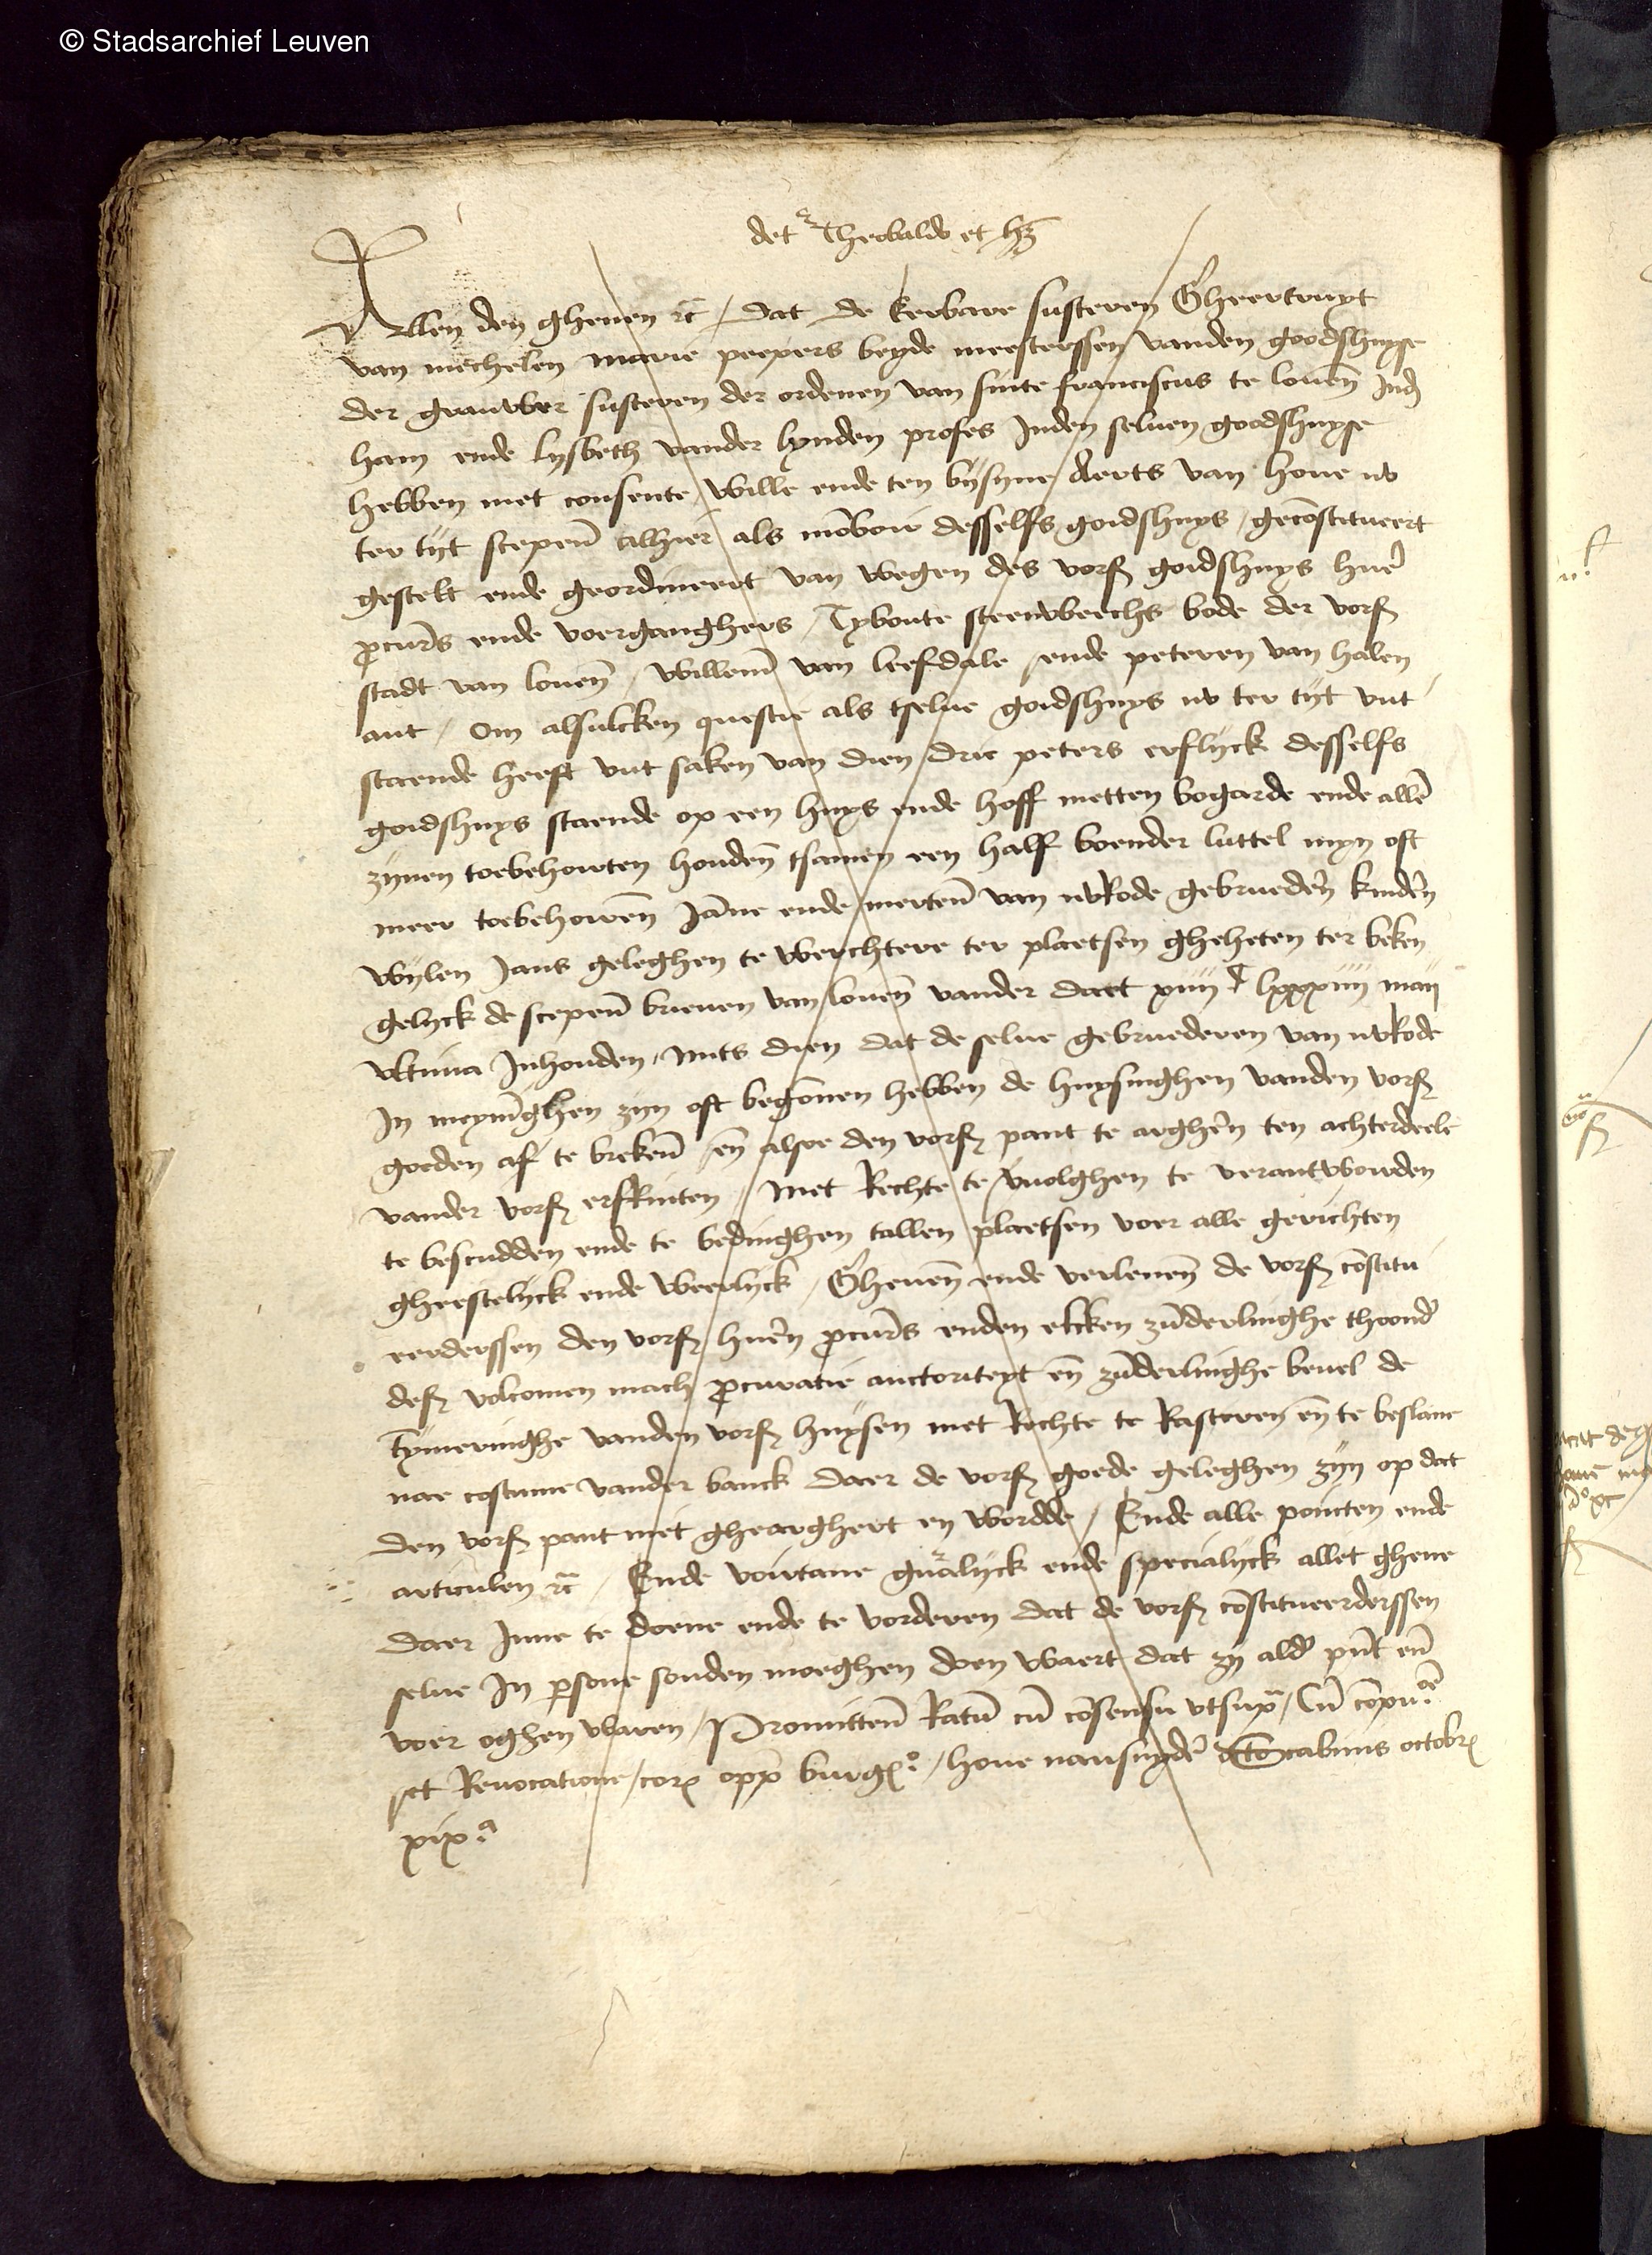 © Stadsarchief Leuven
det Theobaldo et hz
Allen den ghenen etc / dat de Eerbare susteren Gheertruyt
van mechelen marie peepers beyde meesterssen vanden goodshuyse
der grauwer susteren der ordenen van sinte franciscus te louen Ind
ham ende Lysbeth vander Lynden profes Inden seluen goodshuyse
hebben met consente wille ende ten bijsyne Aerts van houe nv
ter tijt scepen alhier als momboir desselfs goidshuys / geconstitueert
gestelt ende geordineert van wegen des vors goidshuys huer
procurs ende voerganghers / Tyboute steenwbeechs bode der vors
stadt van louen / Willem van leefdale / ende peteren van halen
aut / Om alsulcken questie als tselue goidshuys nv ter tijt vut
staende heeft vut saken van dien drie peters erflijck desselfs
goidshuys staende op een huys ende hoff metten bogarde ende allen
zijnen toebehoirten houden tsamen een half boender luttel myn oft
meer toebehoiren Janne ende merten van nvRode gebrueders kinder
Wijlen Jans geleghen te werchtere ter plaetsen gheheten ter beken
gelijck de scepen brieuen van louen vander daet xiiij c lxxxiiij maij
vltima Inhouden / Mits dien dat de selue gebruederen van nvRode
In meyninghen zijn oft begonnen hebben de huysinghen vanden vors
goeden af te breken / en alsoe den vors pant te arghern ten achterdeele
vander vors erfRinten / Met Rechte te vuolghen te verantwoirden
te bescudden ende te bedinghen tallen plaetsen voer alle gerichten
gheestelijck ende weerlijck / Gheuen ende verlenen de vors constitu
eerderssen den vors huern procurs enden elcken zunderlinghe thoond
des volcomen mach procuratie auctoriteyt en zunderlinghe beuel de
Tymmeringhe vanden vors huysen met Rechte te Rasteren en te beslane
nae costume vander banck daer de vors goede geleghen zijn op dat
den vors pant niet ghearghert en wordde / Ende alle poincten ende
articulen etc / Ende voirtane gnalijck ende specialijck allet ghene
daer Inne te doene ende te vorderen dat de vors constitueerderssen
selue In psone souden moeghen doen waert dat zij ald pnt en
voer oghen waren / Promitten Ratum cum consensu vtsupra / Cum compu
et Reuocatione / cor opp burg / houe nausnyder octobr
xix a